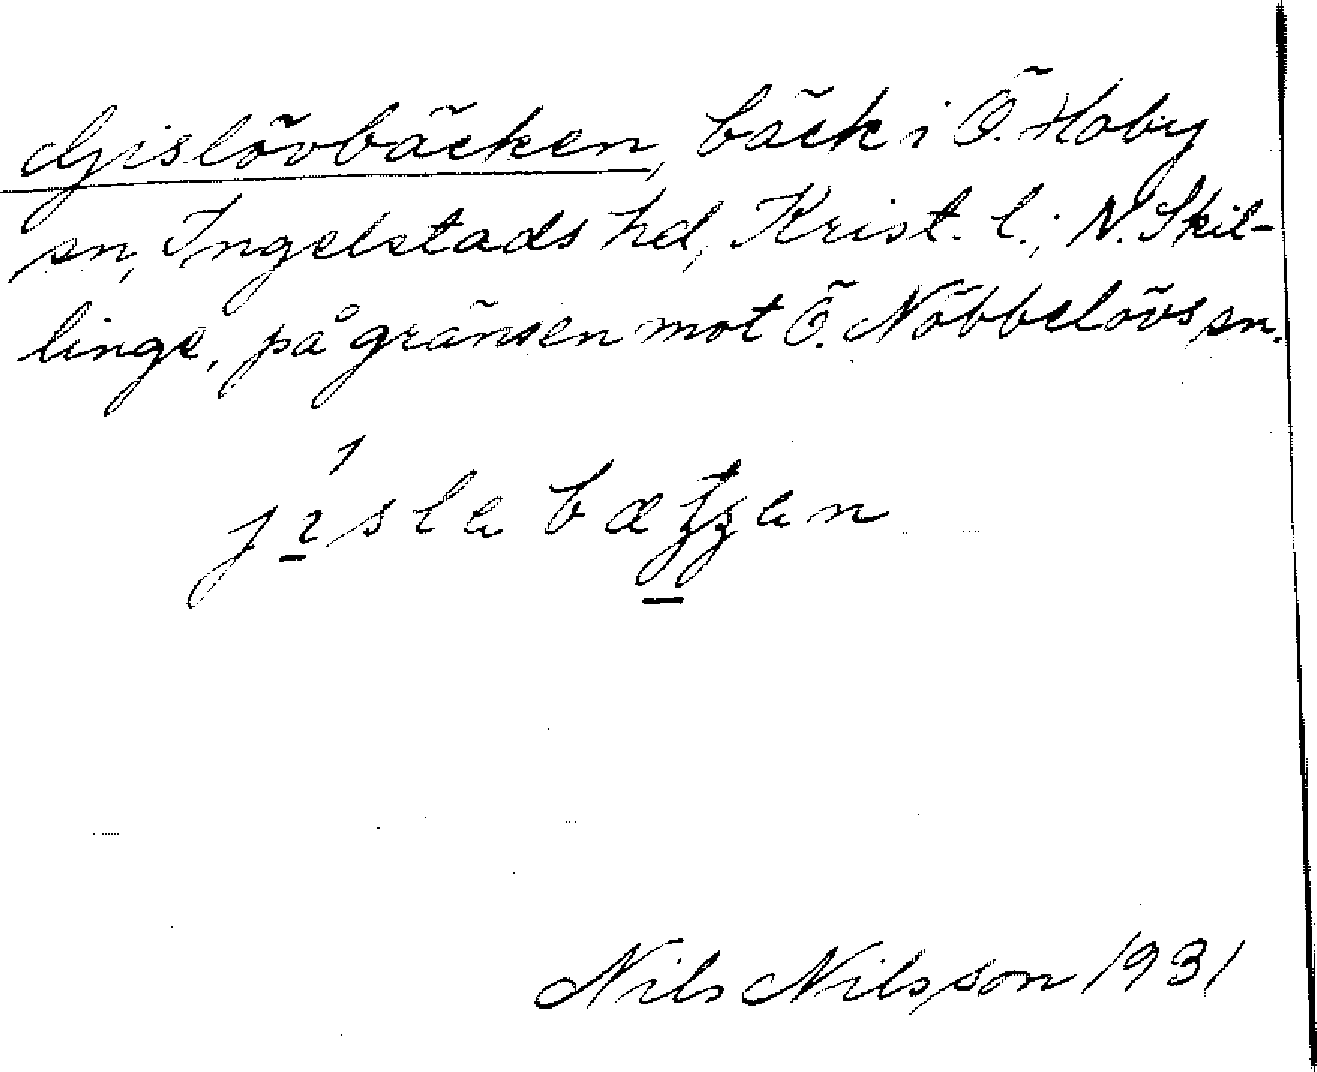 Gislövbäcken, bäck i Ö. Hoby
sn, Ingelstads hd, Krist. l.; N. Skil-
linge, på gränsen mot Ö. Nöbbelövs sn.
Nils Nilsson 1931